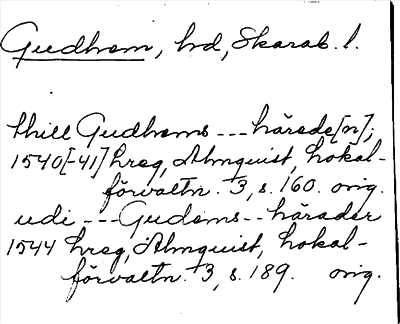 Gudhem, hd, Skarab. l.
thill Gudhems --- härade[n];
1540[-41] hreg, Almquist, Lokal-
förvaltn. 3, s. 160. orig.
udi --- Gudems -- härader
1544 hreg, Almquist, Lokal-
förvaltn. 3, s. 189. orig.